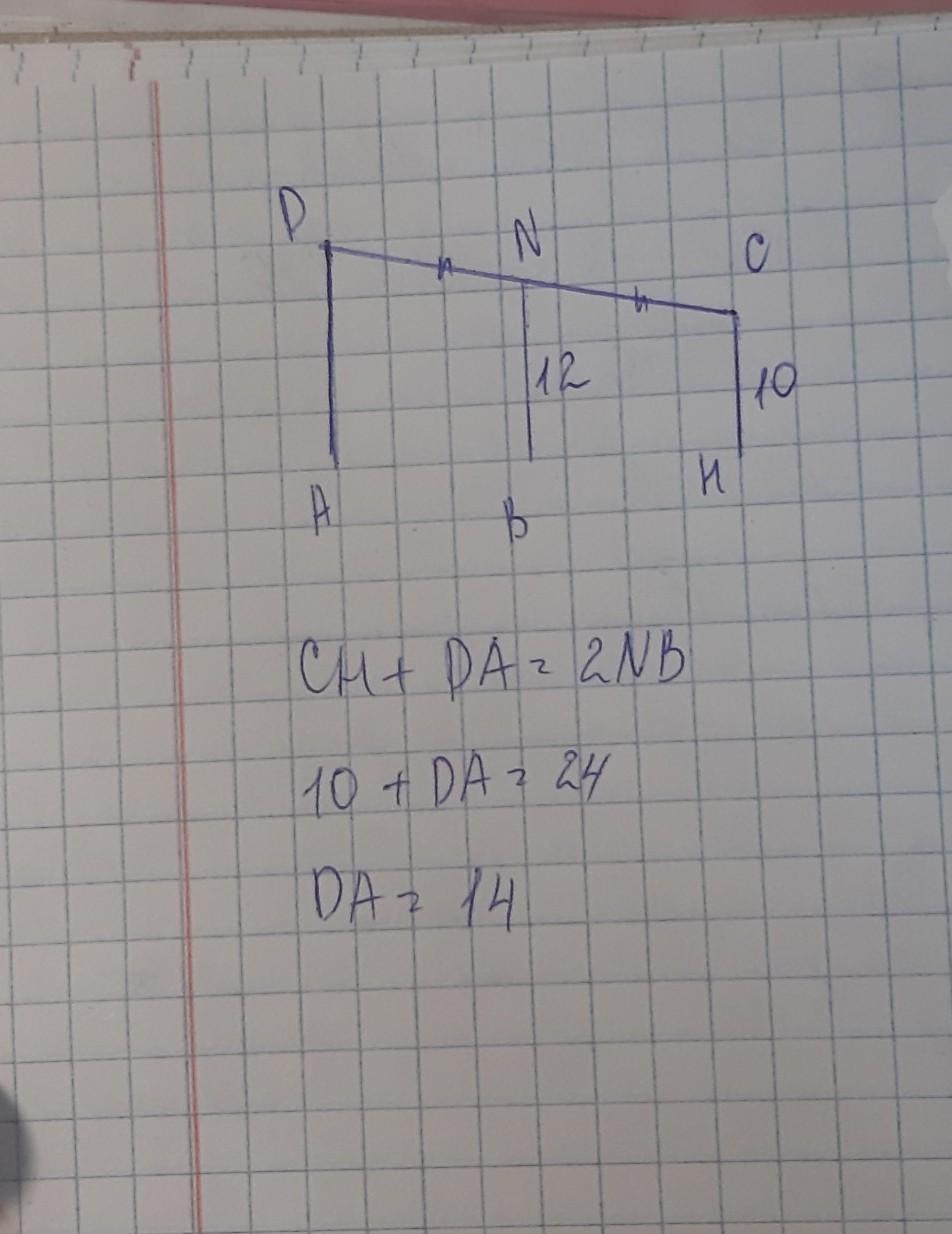 D N C
12 10
A B H
CH + DA = 2NB
10 + DA = 24
DA = 14